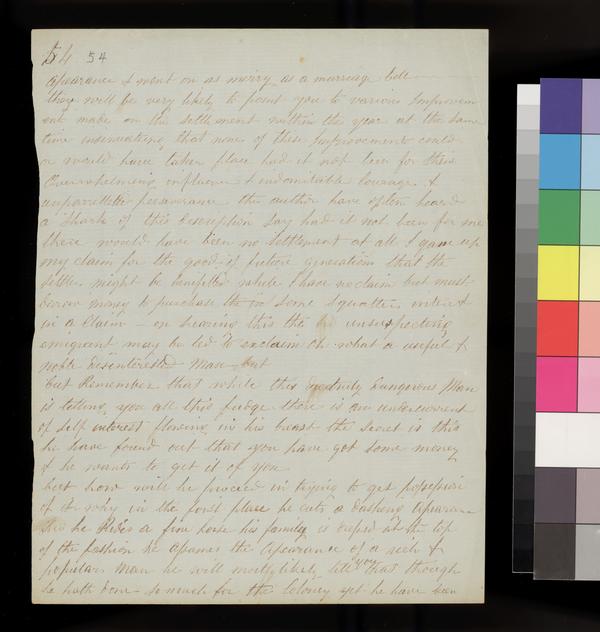 54 54
apearance & went on as merry as a marriage bell
they will be very likely to point you to various Improvem
ents make on the settlement within the year at the same
time insinuating that none of these Improvements could
or would have taken place had it not been for their
Overwhelming influence & indomitable courage &
unparrelleled perseverance the author have often heard
a Shark of this description say had it not been for me
there would have been no settlement at all I gave up
my claim for the good of future generation that the
settler might be benefited while I have no claim but must
borrow money to purchase the some Squatters interest
in a Claim – on hearing this the unsuspecting
emigrant may be led to exclaim Oh what a useful &
noble disinterested man – but
but Remember that while this Dangerous Man
is telling you all this fudge there is an undercurrent
of self interest flowing in his breast the secret is this
he have found out that you have got some money
& he wants to get it of you
but how will he proceed in trying to get possession
of it why in the first place he cuts a dashing apearance
he Rides a fine horse his family is at the top
of the fashion he asumes the apearance of a rich &
popular man he will most likely tell you that though
he hath done so much for the Coloney yet he have been